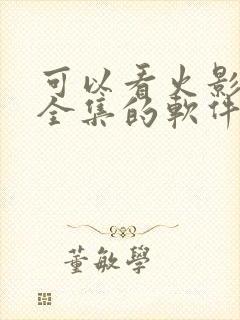 可以看火影
全集的軟件
董敏學